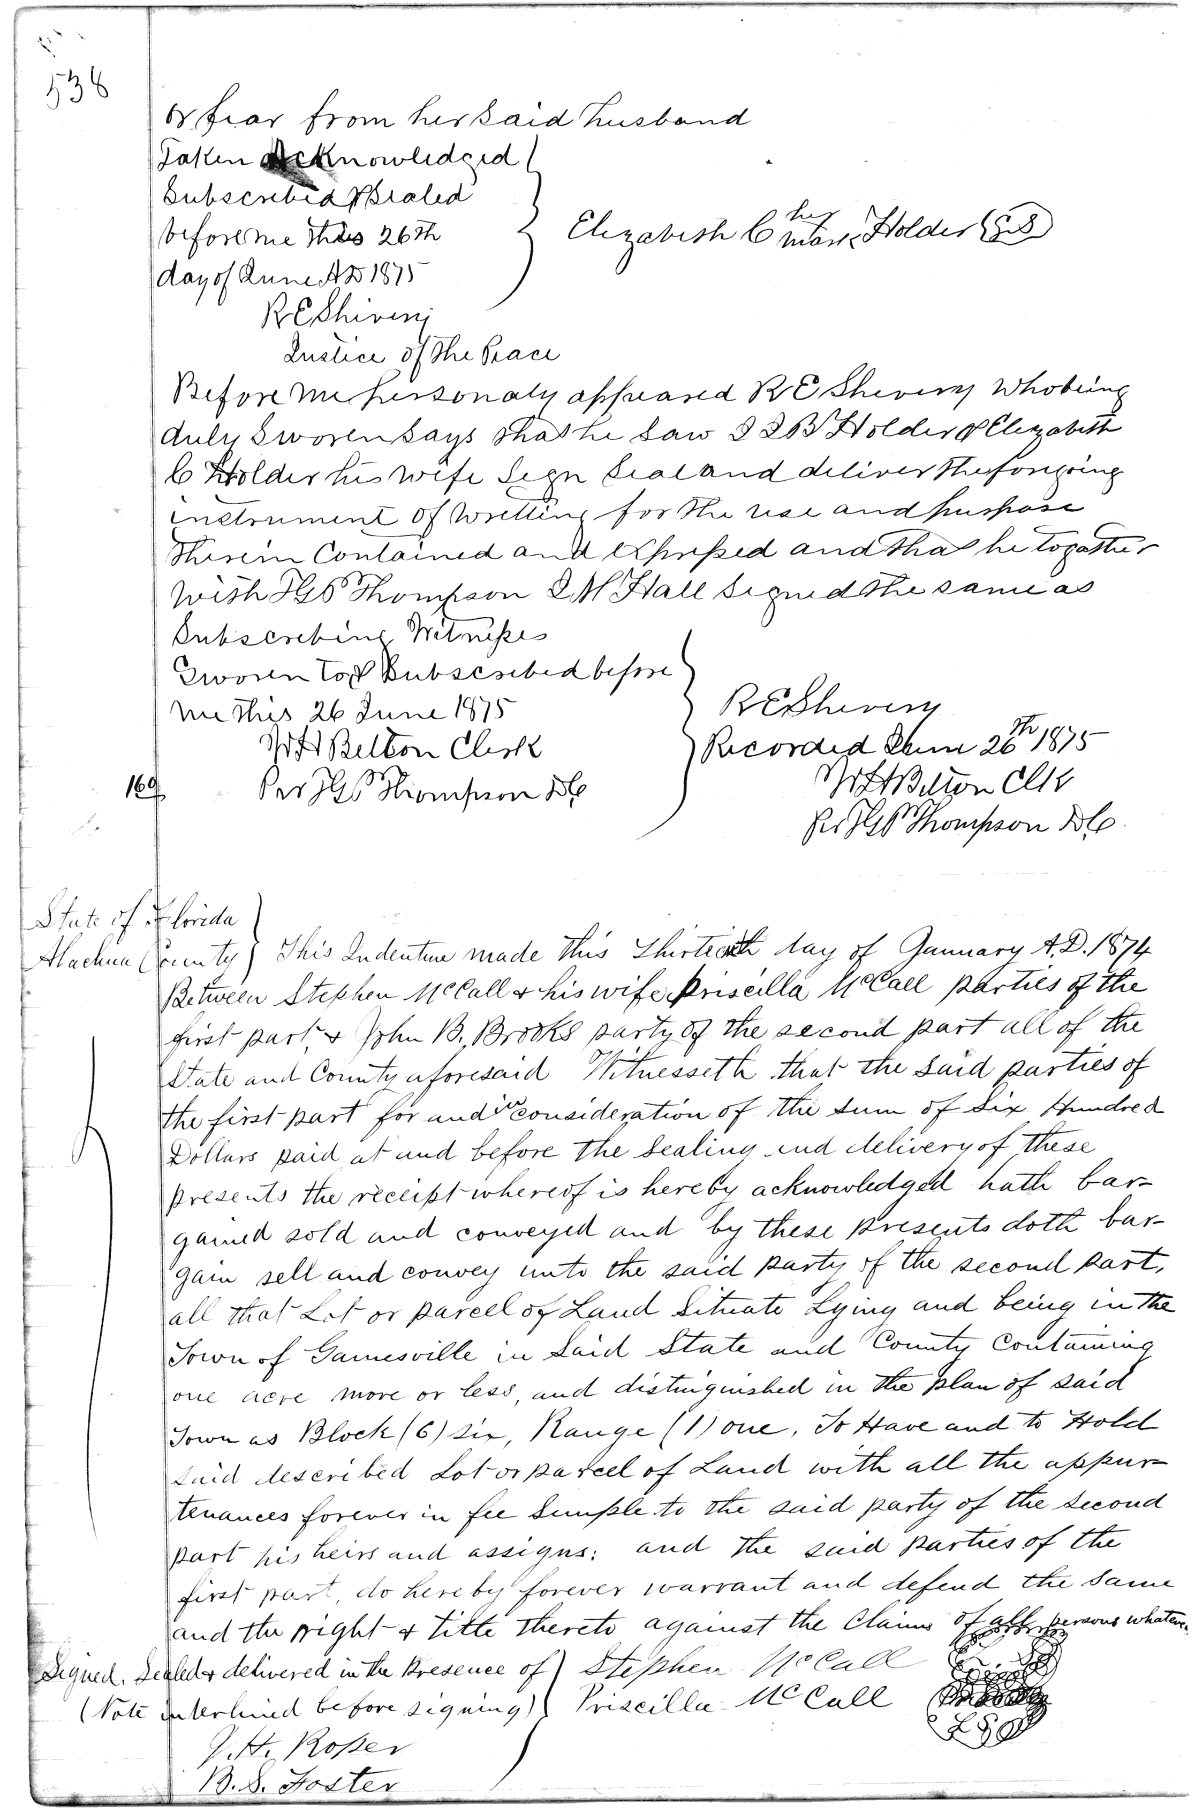 538
or fear from her said husband
Taken Acknowledged
Subscribed & Sealed
before me this 26th
day of June AD 1875
Elizabeth C her mark Holder (LS)
R E Shivery
Justice of the Peace
Before me personaly appeared R E Shivery who being
duly sworen says that he saw J J B Holder & Elizabeth
C Holder his wife Sign Seal and deliver the foregoing
instrument of writting for the use and purpose
therein Contained and expressed and that he togather
with T G P Thompson J M Hall signed the same as
Subscribing Witnesses
Sworen to & Subscribed before
me this 26 June 1875
R E Shivery
W H Belton Clerk
Recorded June 26th 1875
169
Per T G P Thompson D C
W H Belton Clk
Per T G P Thompson D C.
State of Florida
Alachua County This Indenture made this Thirtieth day of January A.D. 1874
Between Stephen McCall & his wife Priscilla McCall parties of the
first part & John B. Brooks party of the second part all of the
State and County aforesaid Witnesseth that the said parties of
the first part for and in consideration of the sum of Six Hundred
Dollars paid at and before the sealing and delivery of these
presents the receipt whereof is hereby acknowledged hath bar-
gained sold and conveyed and by these presents doth bar-
gain sell and convey unto the said party of the second part,
all that Lot or parcel of Land Situate Lying and being in the
Town of Gainesville in Said State and County Containing
one acre more or less, and distinguished in the plan of said
Town as Block (6) six, Range (1) one. To Have and to Hold
said described Lot or parcel of Land with all the appur-
tenances forever in fee Simple to the said party of the second
part his heirs and assigns; and the said parties of the
first part, do hereby forever warrant and defend the same
and the right & title thereto against the Claims of all persons whatever
Signed, Sealed & delivered in the presence of Stephen McCall
(Note interlined before signing) Priscilla McCall
LS
J. H. Roper
B. S. Foster